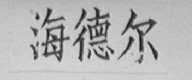 海德尔